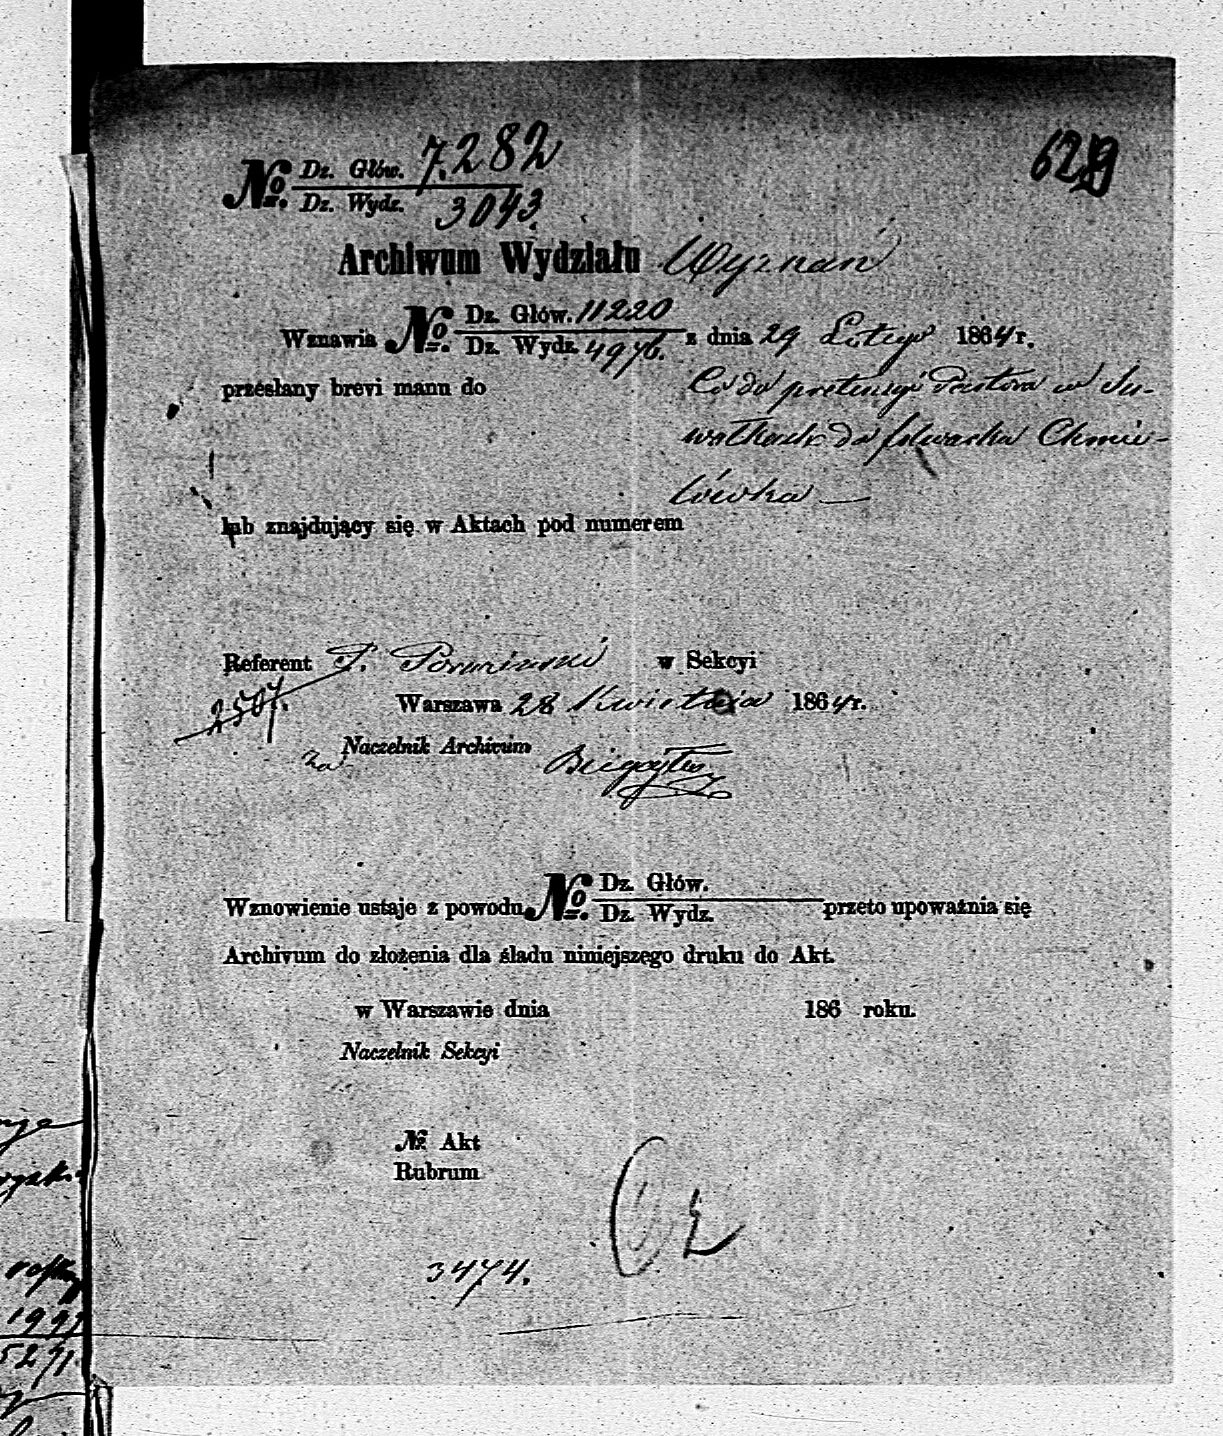 № Dz. Głów. 7.282
Dz. Wydz. 3043.
Archiwum Wydziału Wyznań
Wznawia № Dz. Głów. 11220
Dz. Wydz. 4976. z dnia 29 Lutego 1864 r.
przesłany brevi manu do Co do pretensyi Pastora w Su-
wałkach do folwarku Chmie-
lówka —
lub znajdujący się w Aktach pod numerem
Referent P. w Sekcyi
2507.
Warszawa 28 Kwietnia 1864 r.
za Naczelnik Archivum
Wznowienie ustaje z powodu № Dz. Głów.
Dz. Wydz. przeto upoważnia się
Archivum do złożenia dla śladu niniejszego druku do Akt.
w Warszawie dnia 186 roku.
Naczelnik Sekcyi
№ Akt
Rubrum
3474.
1997
5271